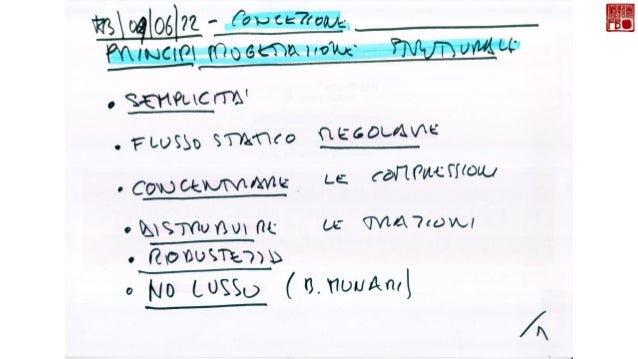 09/06/22 - CONCEZIONE
PRINCIPI PROGETTAZIONE STRUTTURALE
• SEMPLICITA'
• FLUSSO STATICO REGOLARE
• CONCENTRARE LE COMPRESSIONI
• DISTRIBUIRE LE TRAZIONI
• ROBUSTEZZA
• NO LUSSO (B. MUNARI)